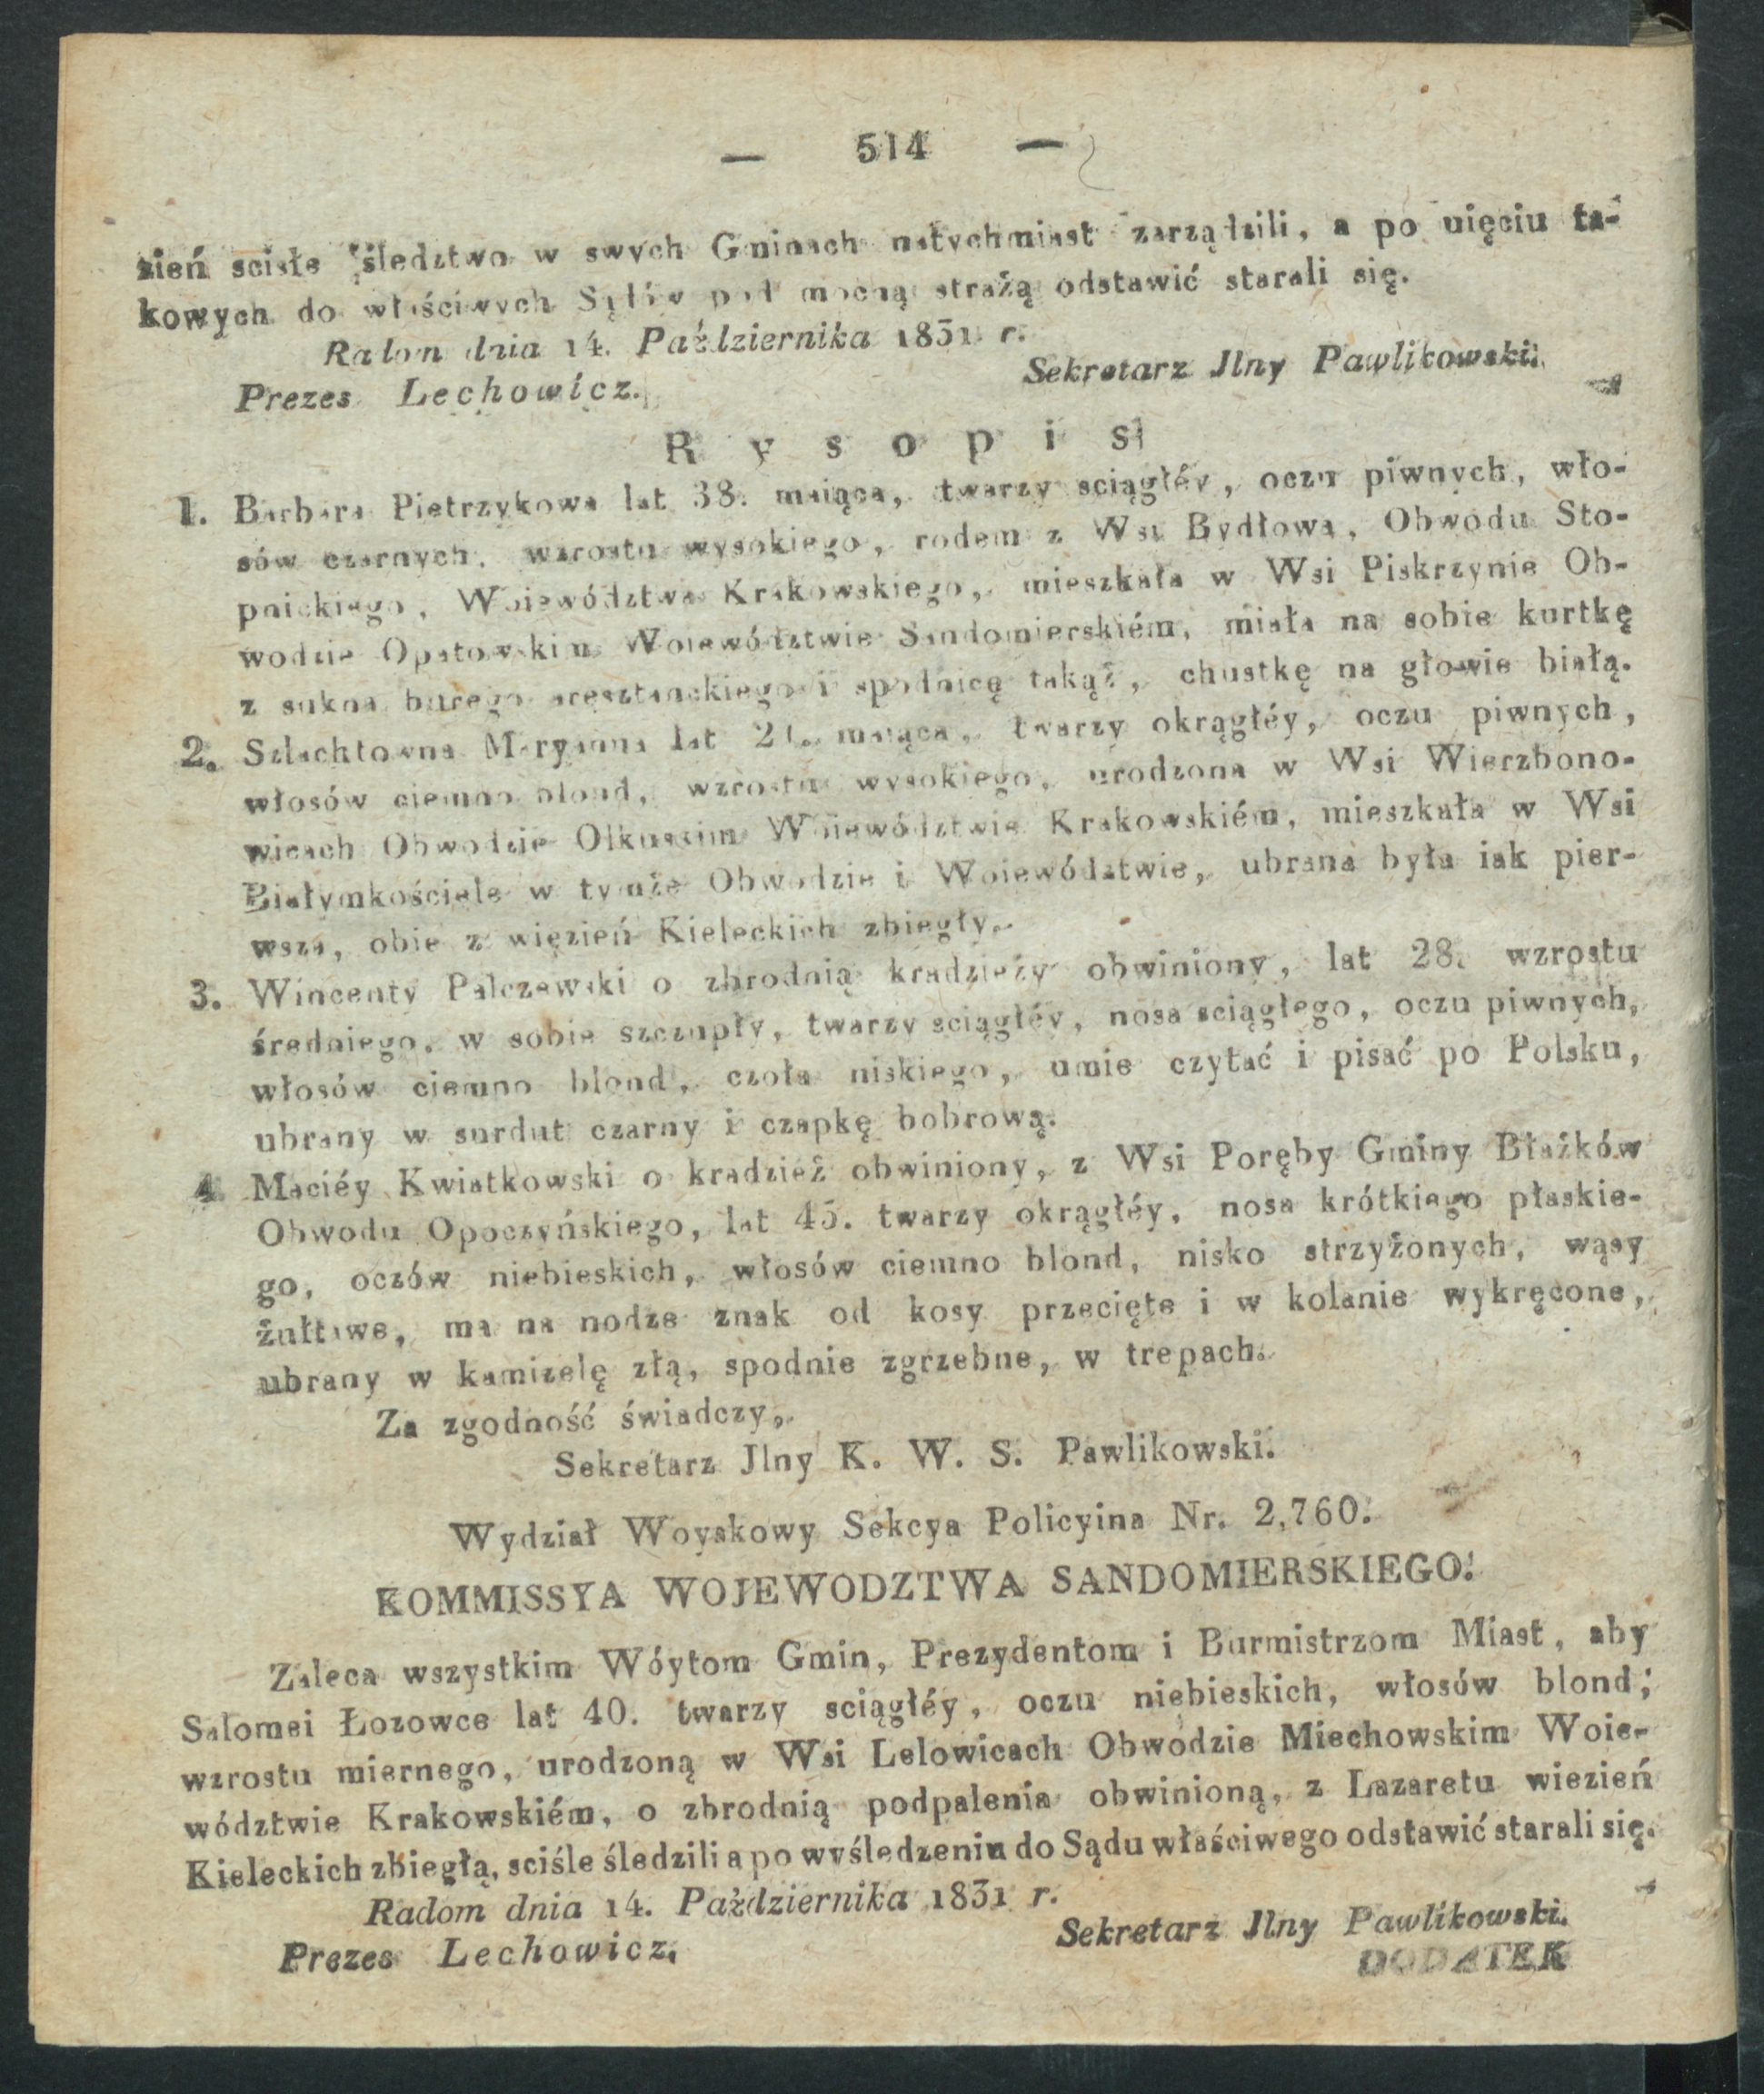 — 514 —
zień scisłe śledztwo w swych Gminach natychmiast zarządzili, a po uięciu ta-
kowych do właściwych Sądów pod mocną strażą odstawić starali się.
Radom dnia 14. Października 1831 r.
Sekretarz Jlny Pawlikowski.
Prezes Lechowicz.
Rysopis
1. Barbara Pietrzykowa lat 38. maiąca, twarzy sciągłéy, oczu piwnych, wło-
sów czarnych, wzrostu wysokiego, rodem z Wsi Bydłowa, Obwodu Sto-
pnickiego, Woiewództwa Krakowskiego, mieszkała w Wsi Piskrzynie Ob-
wodzie Opatowskim Woiewództwie Sandomierskiém, miała na sobie kurtkę
z sukna burego aresztanckiego i spodnicę takąż, chustkę na głowie białą.
2. Szlachtowna Maryanna lat maiąca, twarzy okrągłéy, oczu piwnych,
włosów ciemno blond, wzrostu wysokiego, urodzona w Wsi Wierzbono-
wicach Obwodzie Olkuskim Woiewództwie Krakowskiém, mieszkała w Wsi
Białymkościele w tymże Obwodzie i Woiewództwie, ubrana była iak pier-
wsza, obie z więzień Kieleckich zbiegły.
3. Wincenty Palczewski o zbrodnią kradzieży obwiniony, lat 28. wzrostu
średniego, w sobie szczupły, twarzy sciągłéy, nosa sciągłego, oczu piwnych,
włosów ciemno blond, czoła niskiego, umie czytać i pisać po Polsku,
ubrany w surdut czarny i czapkę bobrową.
4 Maciéy Kwiatkowski o kradzież obwiniony, z Wsi Poręby Gminy Błażków
Obwodu Opoczyńskiego, lat 45. twarzy okrągłéy, nosa krótkiego płaskie-
go, oczów niebieskich, włosów ciemno blond, nisko strzyżonych, wąsy
żułtawe, ma na nodze znak od kosy przecięte i w kolanie wykręcone,
ubrany w kamizelę złą, spodnie zgrzebne, w trepach.
Za zgodność świadczy,
Sekretarz Jlny K. W. S. Pawlikowski.
Wydział Woyskowy Sekcya Policyina Nr. 2,760.
KOMMISSYA WOJEWODZTWA SANDOMIERSKIEGO.
Zaleca wszystkim Wóytom Gmin, Prezydentom i Burmistrzom Miast, aby
Salomei Łozowce lat 40. twarzy sciągłéy, oczu niebieskich, włosów blond,
wzrostu miernego, urodzoną w Wsi Lelowicach Obwodzie Miechowskim Woie-
wództwie Krakowskiém, o zbrodnią podpalenia obwinioną, z Lazaretu wiezień
Kieleckich zbiegłą, sciśle śledzili a po wyśledzeniu do Sądu właściwego odstawić starali się.
Radom dnia 14. Października 1831 r.
Sekretarz Jlny Pawlikowski.
Prezes Lechowicz.
DODATEK